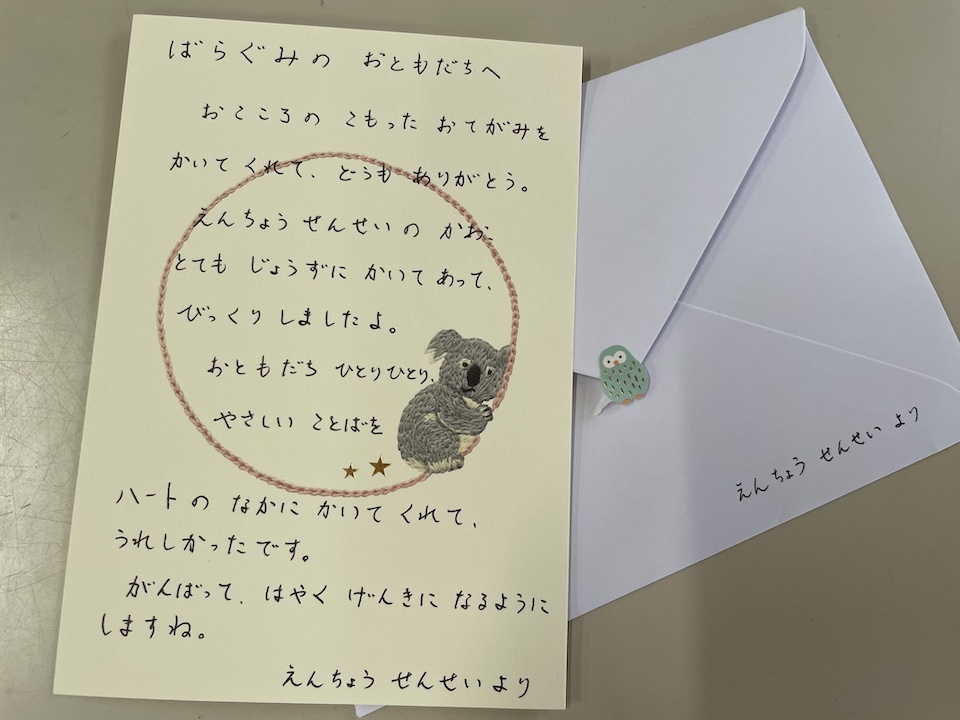 ばらぐみの おともだちへ
おこころの こもった おてがみを
かいて くれて、どうも ありがとう。
えんちょう せんせいの かお、
とても じょうずに かいて あって、
びっくり しましたよ。
おともだち ひとりひとり、
やさしい ことばを
ハートの なかに かいて くれて、
うれしかったです。
がんばって、はやく げんきに なるように
しますね。
えんちょう せんせい より
えんちょう せんせい より